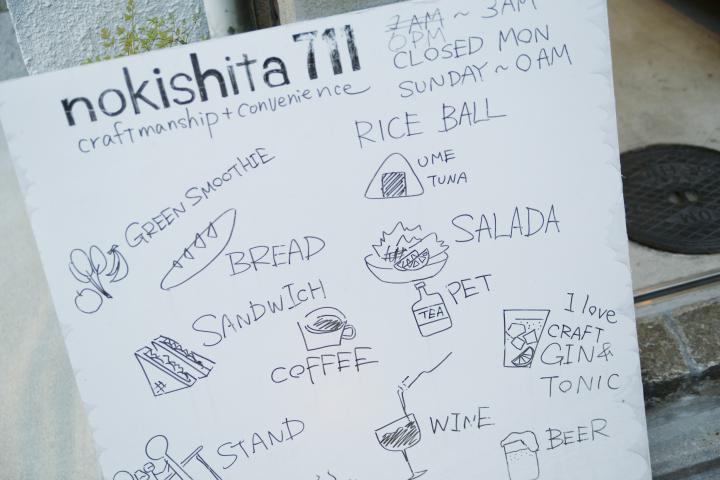 nokishita 711
craftmanship + convenience
7AM ~ 3AM
0PM
CLOSED MON
SUNDAY ~ 0AM
RICE BALL
UME
TUNA
GREEN SMOOTHIE
BREAD
SALADA
SANDWICH
COFFEE
PET
TEA
I love
CRAFT
GIN &
TONIC
STAND
WINE
BEER